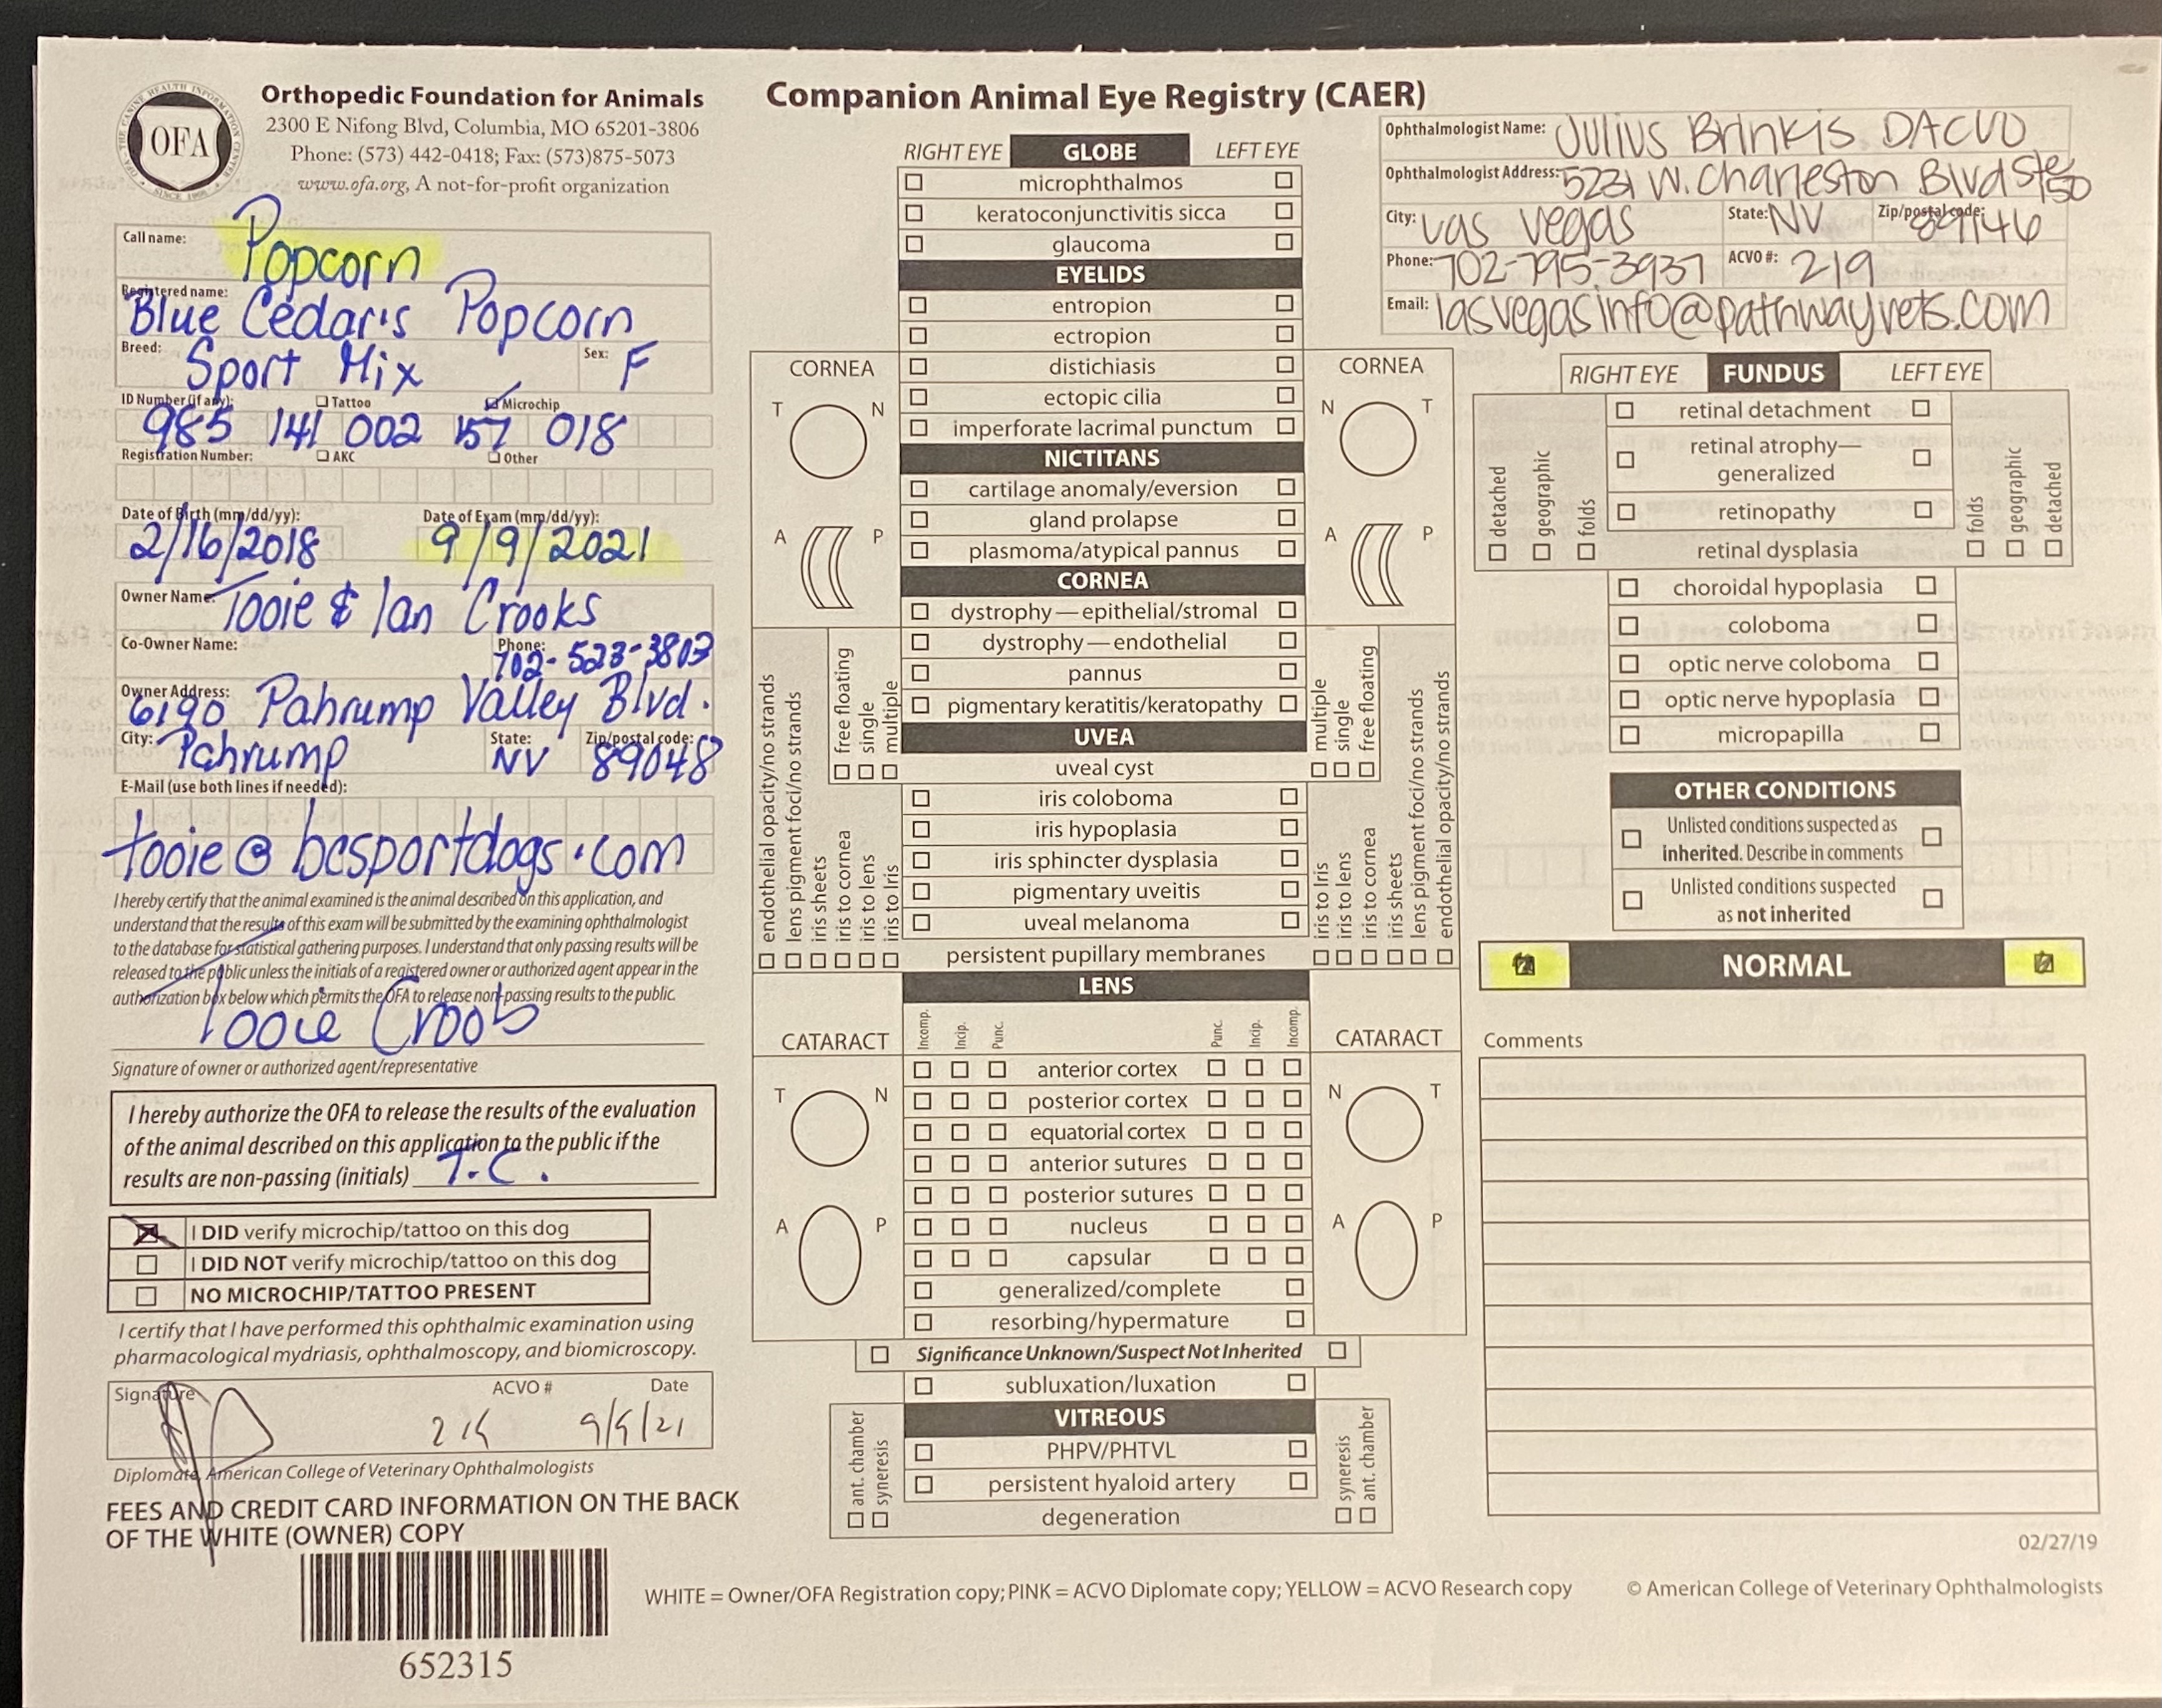 Orthopedic Foundation for Animals
2300 E Nifong Blvd, Columbia, MO 65201-3806
Phone: (573) 442-0418; Fax: (573)875-5073
www.ofa.org, A not-for-profit organization
OFA
Call name: Popcorn
Registered name: Blue Cedar's Popcorn
Breed: Sport Mix Sex: F
ID Number (if any): Tattoo Microchip
985 141 002 157 018
Registration Number: AKC Other
Date of Birth (mm/dd/yy): Date of Exam (mm/dd/yy):
2/16/2018 9/9/2021
Owner Name: Tooie & Ian Crooks
Co-Owner Name: Phone: 702-523-3803
Owner Address: 6190 Pahrump Valley Blvd.
City: Pahrump State: NV Zip/postal code: 89048
E-Mail (use both lines if needed):
tooie@bcsportdogs.com
I hereby certify that the animal examined is the animal described on this application, and
understand that the results of this exam will be submitted by the examining ophthalmologist
to the database for statistical gathering purposes. I understand that only passing results will be
released to the public unless the initials of a registered owner or authorized agent appear in the
authorization box below which permits the OFA to release non-passing results to the public.
Tooie Crooks
Signature of owner or authorized agent/representative
I hereby authorize the OFA to release the results of the evaluation
of the animal described on this application to the public if the
results are non-passing (initials) T.C.
I DID verify microchip/tattoo on this dog
I DID NOT verify microchip/tattoo on this dog
NO MICROCHIP/TATTOO PRESENT
I certify that I have performed this ophthalmic examination using
pharmacological mydriasis, ophthalmoscopy, and biomicroscopy.
Signature ACVO # Date
219 9/9/21
Diplomate, American College of Veterinary Ophthalmologists
FEES AND CREDIT CARD INFORMATION ON THE BACK
OF THE WHITE (OWNER) COPY
652315
Companion Animal Eye Registry (CAER)
RIGHT EYE GLOBE LEFT EYE
microphthalmos
keratoconjunctivitis sicca
glaucoma
EYELIDS
entropion
ectropion
distichiasis
ectopic cilia
imperforate lacrimal punctum
NICTITANS
cartilage anomaly/eversion
gland prolapse
plasmoma/atypical pannus
CORNEA
dystrophy—epithelial/stromal
dystrophy—endothelial
pannus
pigmentary keratitis/keratopathy
UVEA
uveal cyst
iris coloboma
iris hypoplasia
iris sphincter dysplasia
pigmentary uveitis
uveal melanoma
persistent pupillary membranes
CORNEA
T N
A P
free floating
single
multiple
endothelial opacity/no strands
lens pigment foci/no strands
iris sheets
iris to cornea
iris to lens
iris to Iris
CORNEA
N T
A P
multiple
single
free floating
iris to Iris
iris to lens
iris to cornea
iris sheets
lens pigment foci/no strands
endothelial opacity/no strands
LENS
CATARACT Incomp. Incip. Punc. Punc. Incip. Incomp. CATARACT
T N anterior cortex N T
posterior cortex
equatorial cortex
anterior sutures
posterior sutures
A P nucleus A P
capsular
generalized/complete
resorbing/hypermature
Significance Unknown/Suspect Not Inherited
subluxation/luxation
VITREOUS
PHPV/PHTVL
persistent hyaloid artery
degeneration
ant. chamber
syneresis
syneresis
ant. chamber
Ophthalmologist Name: Julius Brinkis DACVO
Ophthalmologist Address: 5231 W. Charleston Blvd Ste 150
City: Las Vegas State: NV Zip/postal code: 89146
Phone: 702-795-3937 ACVO #: 219
Email: lasvegasinfo@pathwayvets.com
RIGHT EYE FUNDUS LEFT EYE
retinal detachment
retinal atrophy—
generalized
retinopathy
retinal dysplasia
detached
geographic
folds
folds
geographic
detached
choroidal hypoplasia
coloboma
optic nerve coloboma
optic nerve hypoplasia
micropapilla
OTHER CONDITIONS
Unlisted conditions suspected as
inherited. Describe in comments
Unlisted conditions suspected
as not inherited
NORMAL
Comments
02/27/19
WHITE = Owner/OFA Registration copy; PINK = ACVO Diplomate copy; YELLOW = ACVO Research copy
© American College of Veterinary Ophthalmologists